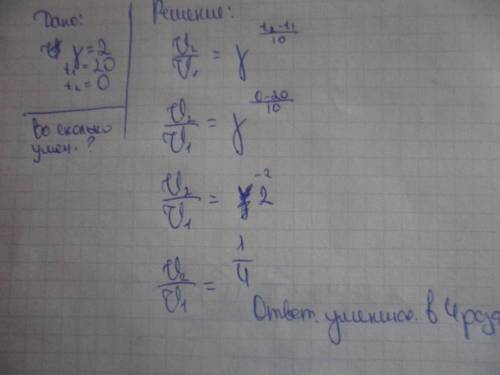 Дано:
γ = 2
t₁ = 20
t₂ = 0
Во сколько
умен. ?
Решение:
V₂/V₁ = γ^((t₂-t₁)/10)
V₂/V₁ = γ^((0-20)/10)
V₂/V₁ = 2^(-2)
V₂/V₁ = 1/4
Ответ. уменьшо. в 4 раза